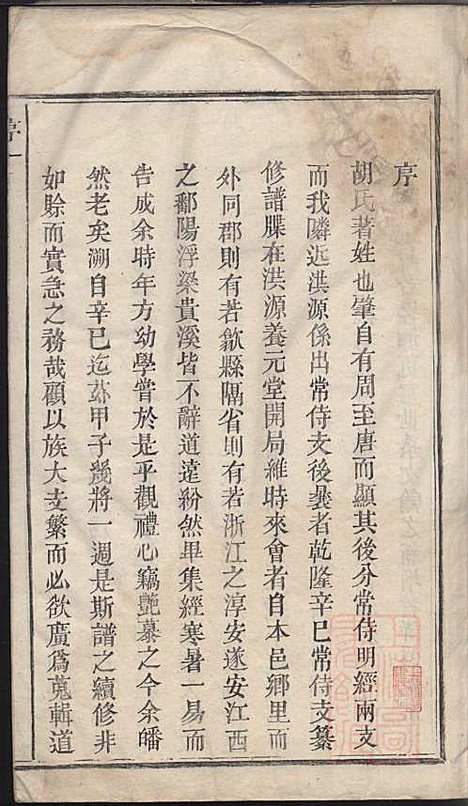 序
胡氏著姓也肇自有周至唐而顯其後分常侍明經兩支
而我隣近洪源係出常侍支後曩者乾隆辛巳常侍支纂
修譜牒在洪源養元堂開局維時來會者自本邑鄉里而
外同郡則有若歙縣隔省則有若浙江之淳安遂安江西
之鄱陽浮梁貴溪皆不辭道遠紛然畢集經寒暑一易而
告成余時年方幼學嘗於是乎觀禮心竊艷慕之今余皤
然老矣溯自辛巳迄茲甲子幾將一週是斯譜之續修非
如賒而實急之務哉顧以族大支繁而必欲廣爲蒐輯道
序一